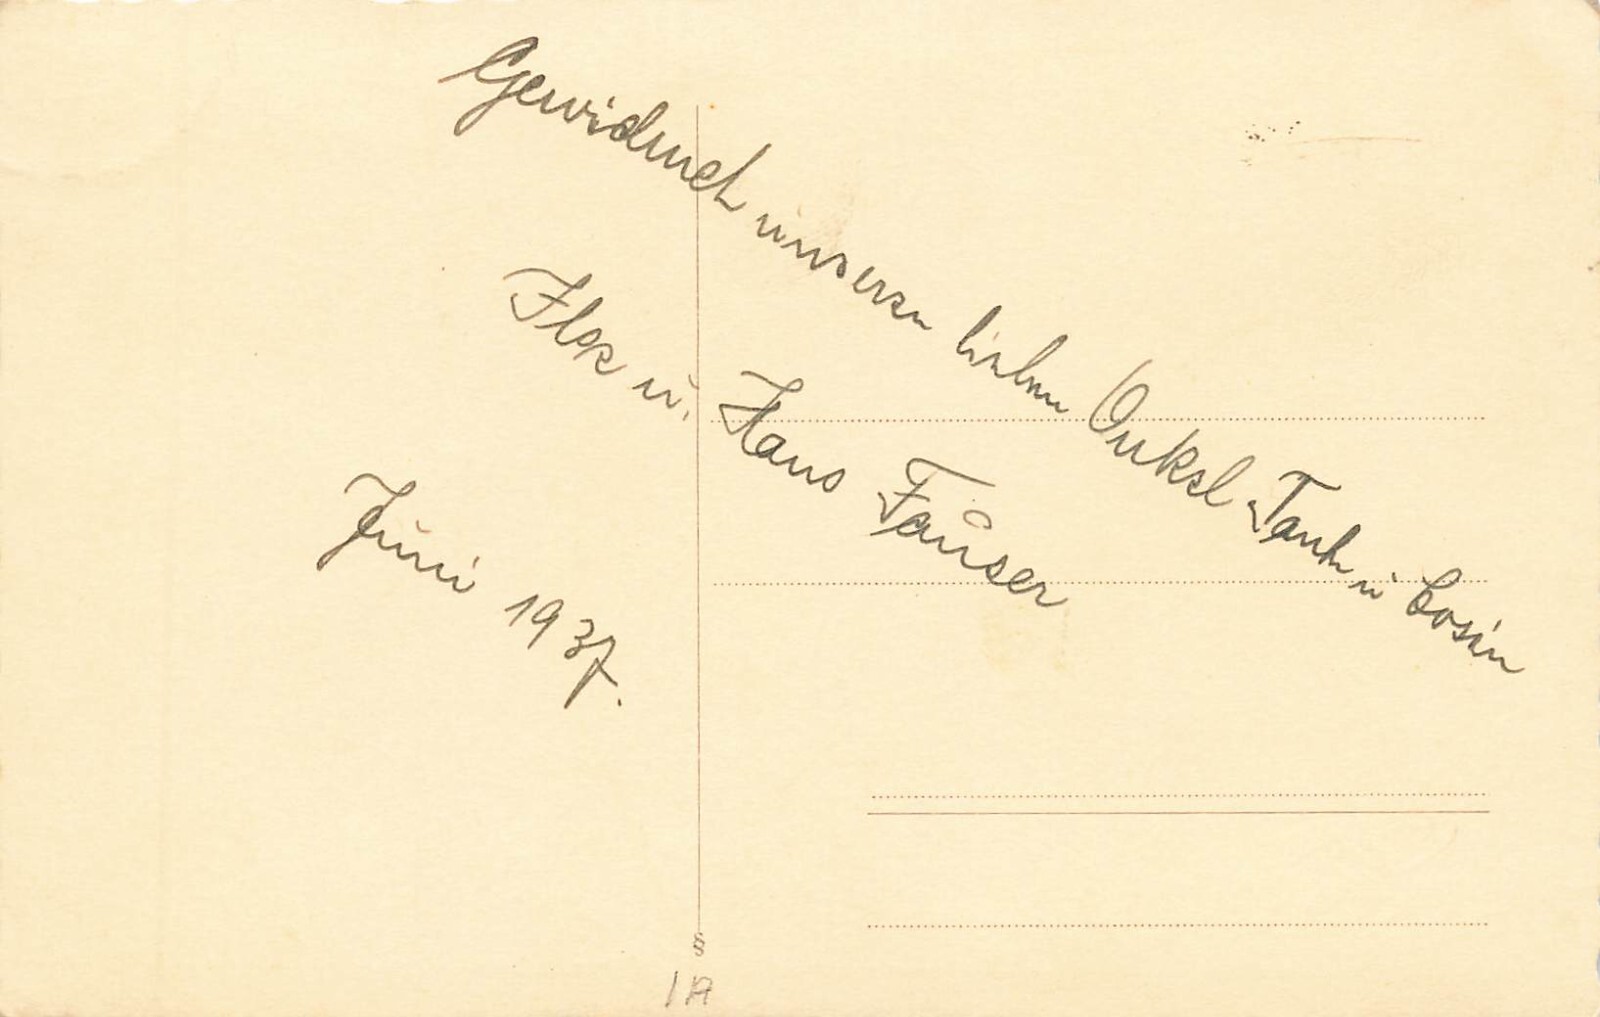 Gewidmet unseren lieben Onkel Tante u Cosin
Ilse u. Hans Fauser
Juni 1937.
§
1A